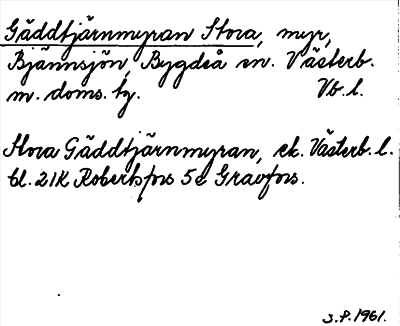 Gäddtjärnmyran Stora, myr,
Bjännsjön, Bygdeå sn. Västerb.
m. doms. tg. Vb. l.
Stora Gäddtjärnmyran, ek. Västerb. l.
bl. 21K Robertsfors 5c Gravfors.
3.P.1961.